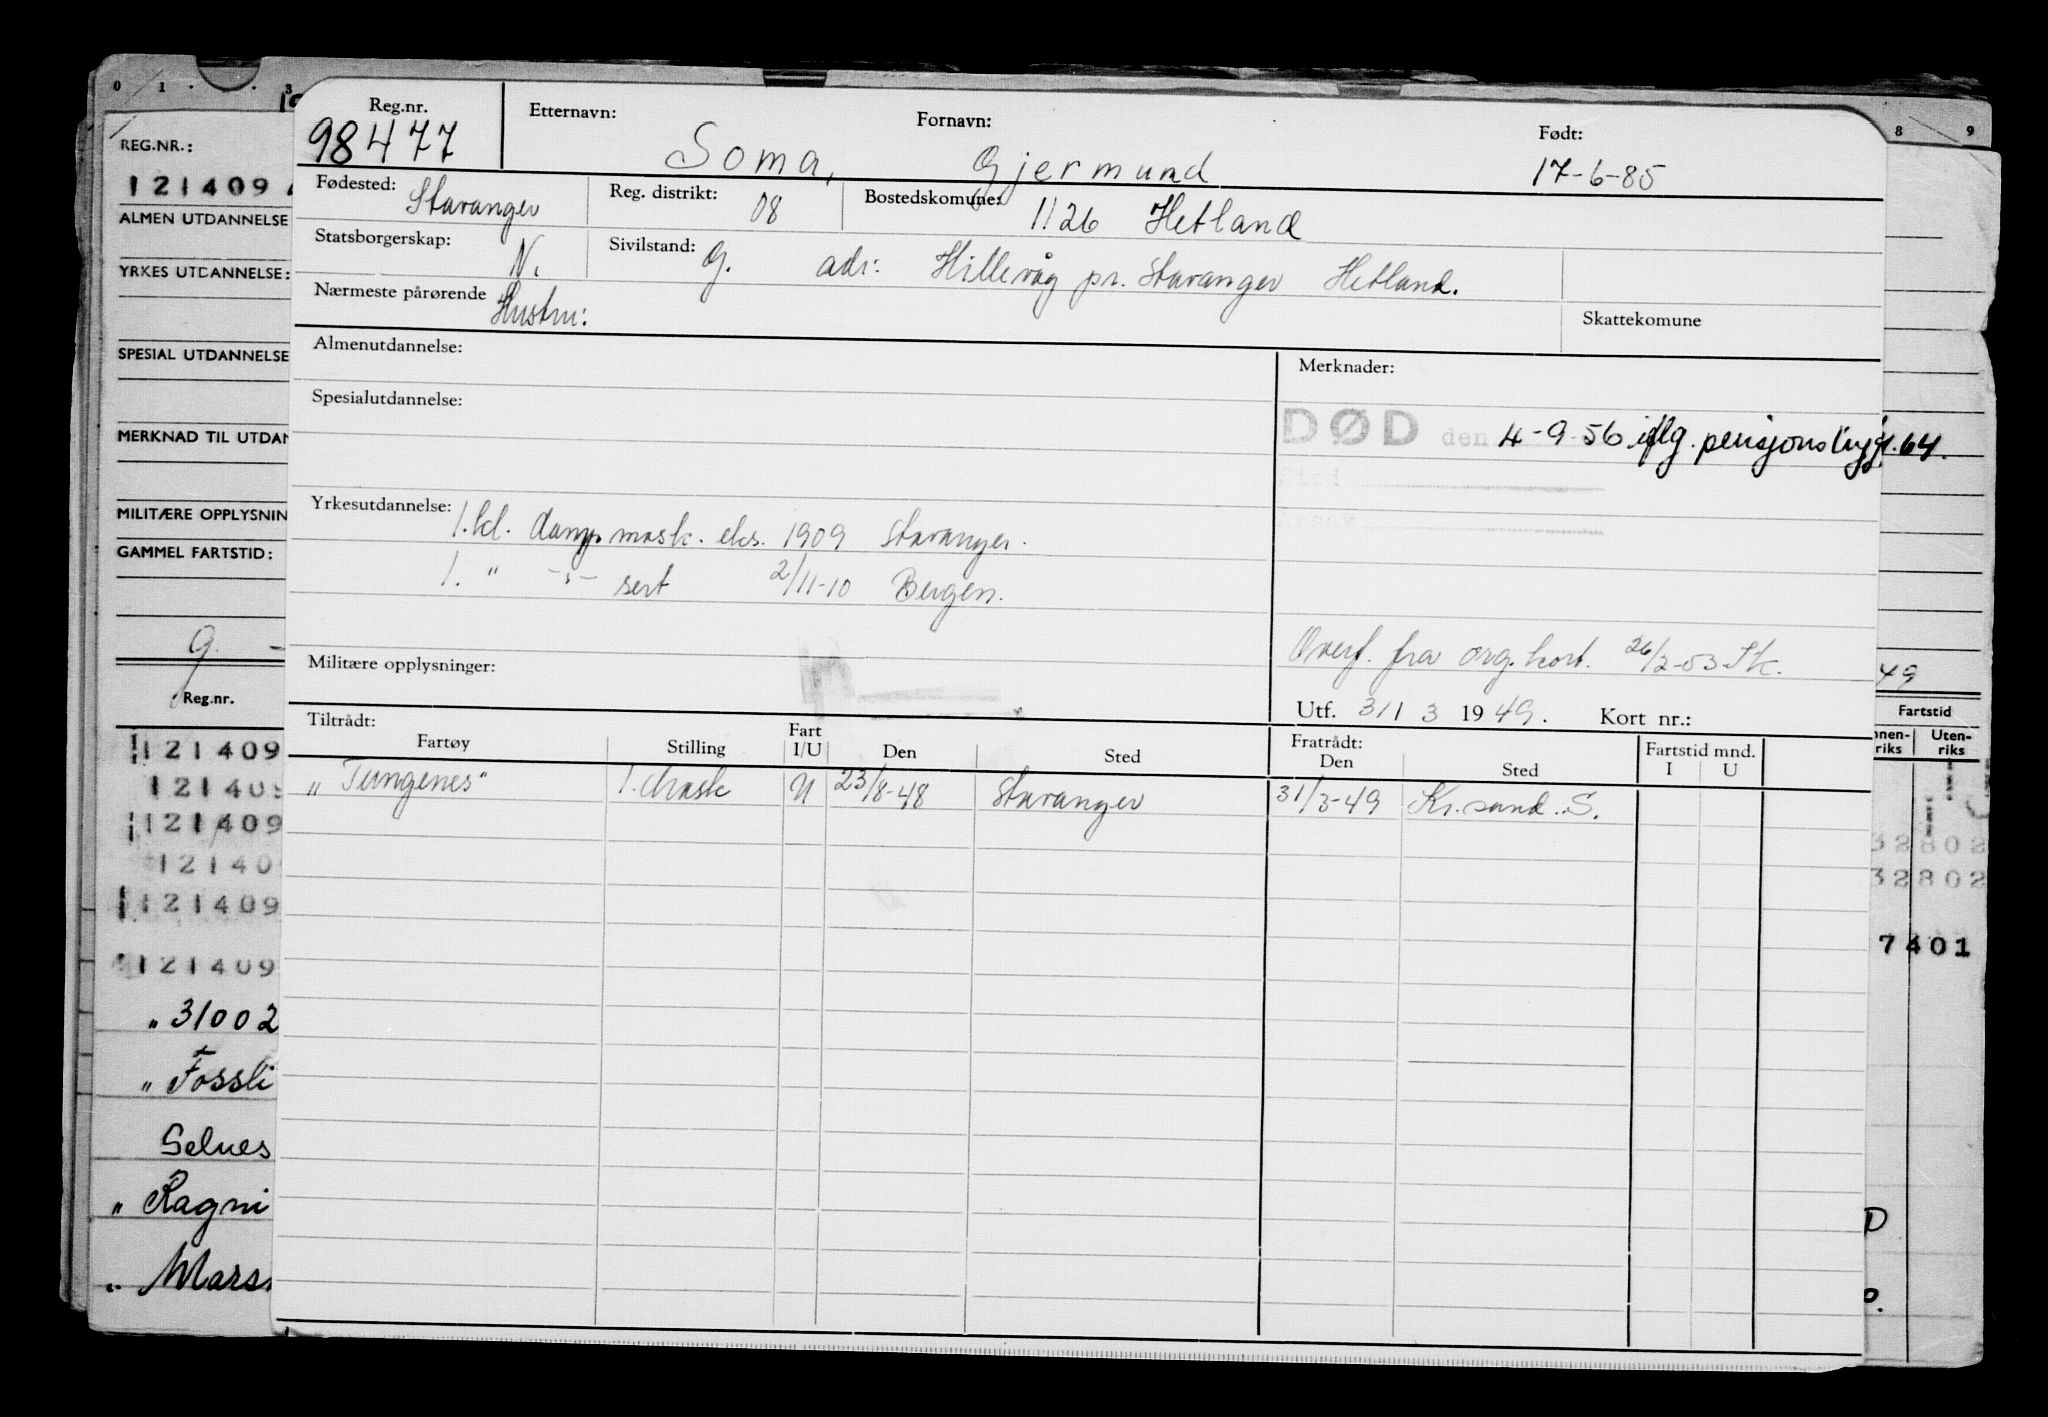 0 1 3
8 9
REG.NR.:
121409
ALMEN UTDANNELSE
YRKES UTDANNELSE:
SPESIAL UTDANNELSE
MERKNAD TIL UTDAN
MILITÆRE OPPLYSNIN
GAMMEL FARTSTID:
g. -
Reg.nr.
121409
121409
121409
12140
121409
121409
" 31002
" Fossli
Selnes
" Ragni
" Mars
Reg.nr. Etternavn: Fornavn: Født:
98477 Soma, Gjermund 17-6-85
Fødested: Stavanger Reg. distrikt: 08 Bostedskomune: 1126 Hetland
Statsborgerskap: N. Sivilstand: G. adr: Hillevåg pr. Stavanger Hetland.
Nærmeste pårørende Hustru:
Skattekomune
Almenutdannelse:
Merknader:
Spesialutdannelse:
DØD den 4-9-56 iflg. pensjonstrygd. 64.
Sted
Årsak
Yrkesutdannelse: 1.kl. damp mask. eks. 1909 Stavanger.
1. " -"- sert 2/11-10 Bergen.
Overf. fra org. kort. 26/2-53 Sk.
Militære opplysninger:
Utf. 31/ 3 1949. Kort nr.:
Tiltrådt: Fratrådt:
Fartøy Stilling Fart I/U Den Sted Den Sted Fartstid mnd. I U
"Tungenes" 1. Mask U 23/8-48 Stavanger 31/3-49 Kr.sand. S.
49
Fartstid
nnen-riks Uten-riks
32802
32802
7401